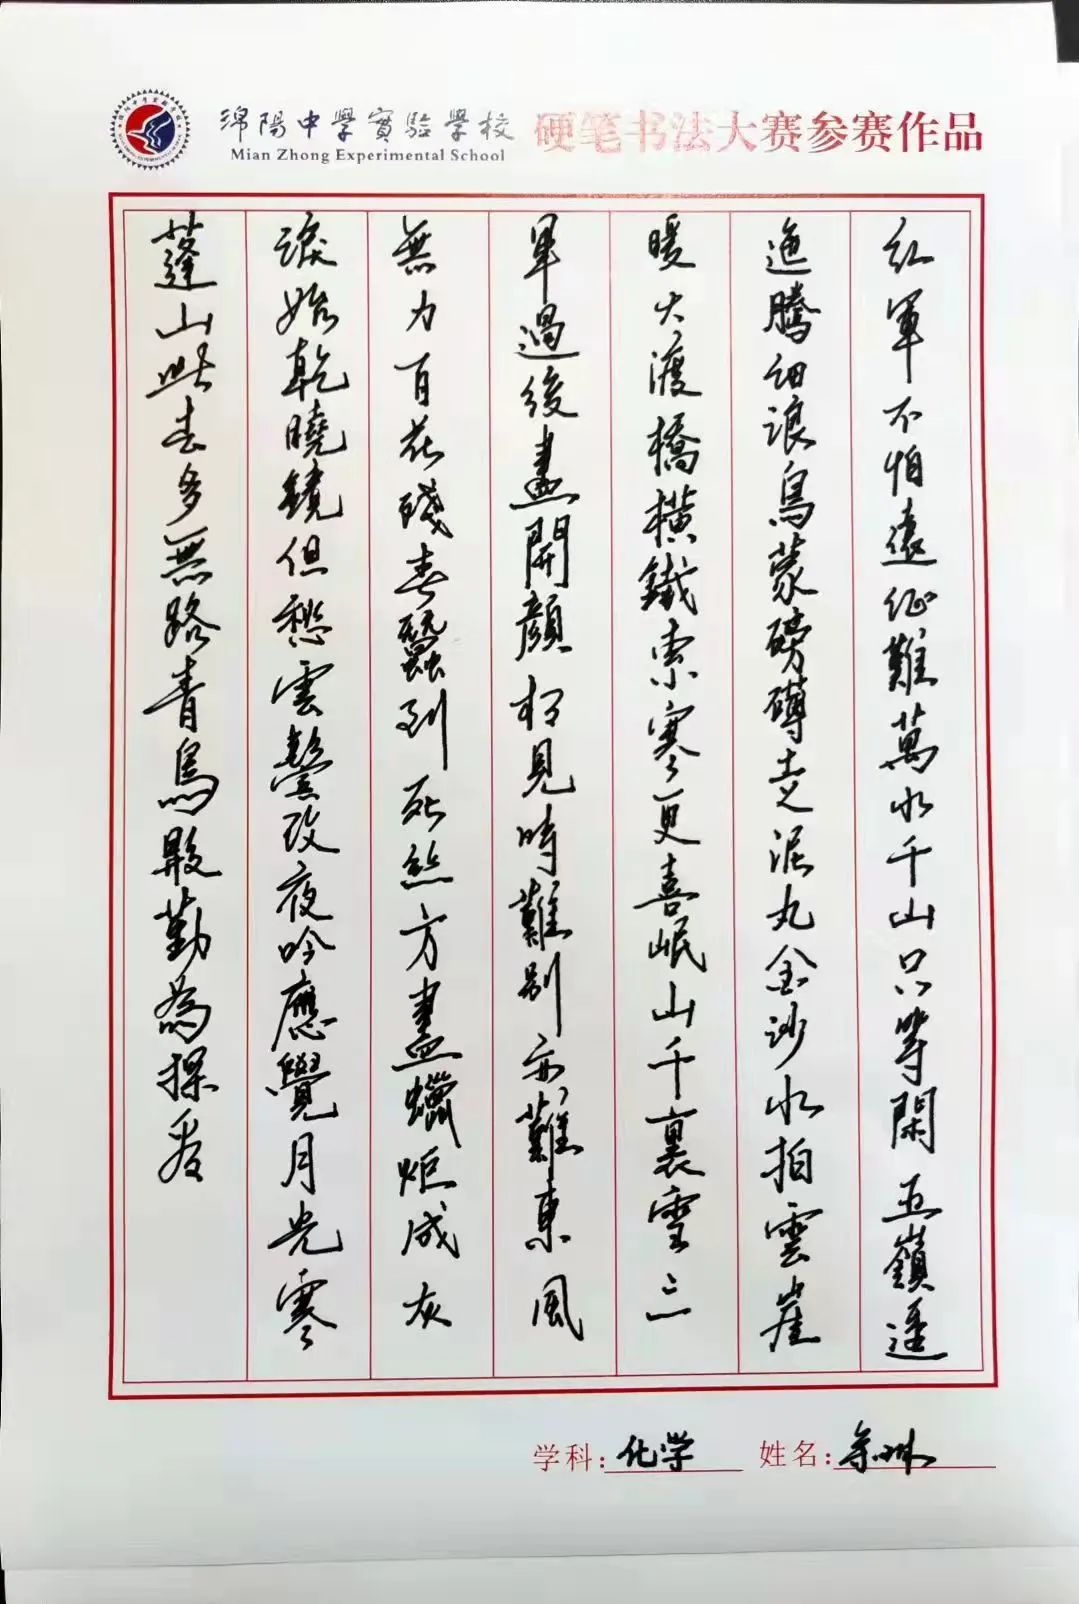 綿陽中學實驗學校
Mian Zhong Experimental School
硬笔书法大赛参赛作品
紅軍不怕遠征難萬水千山只等閑五嶺逶
迤騰細浪烏蒙磅礴走泥丸金沙水拍雲崖
暖大渡橋橫鐵索寒更喜岷山千裏雪三
軍過後盡開顏相見時難別亦難東風
無力百花殘春蠶到死絲方盡蠟炬成灰
淚始乾曉鏡但愁雲鬢改夜吟應覺月光寒
蓬山此去多無路青鳥殷勤為探看
学科：化学
姓名：